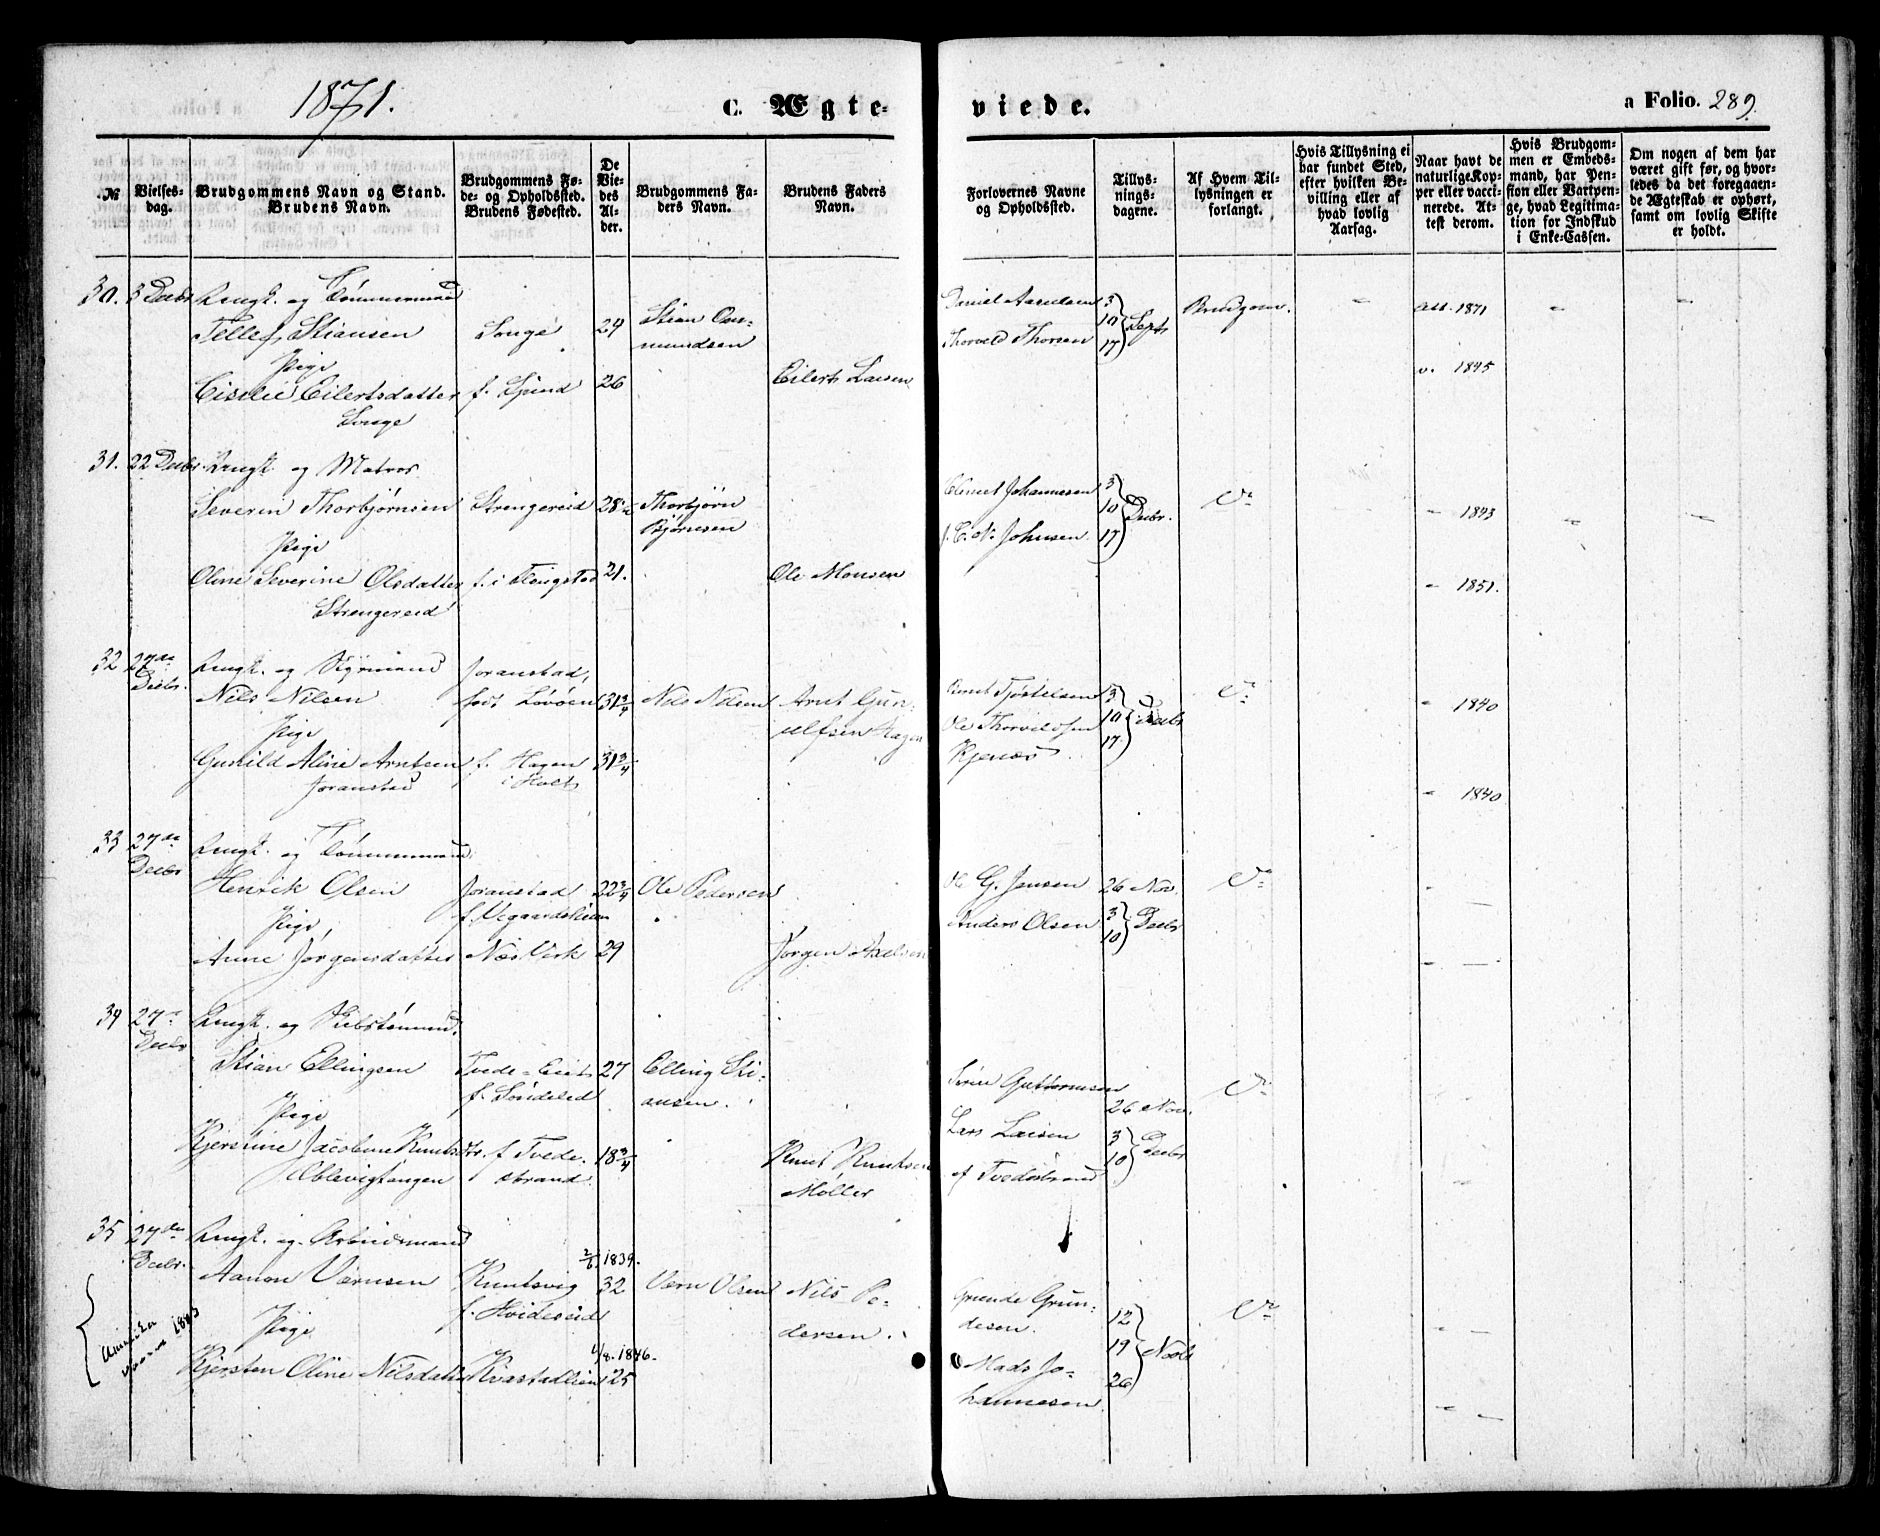 1871.
C. Ægte-
viede.
a Folio. 289.
№
Vielses-
dag.
Brudgommens Navn og Stand.
Brudens Navn.
Brudgommens Fø-
de- og Opholdssted.
Brudens Fødested.
De
Vie-
des
Al-
der.
Brudgommens Fa-
ders Navn.
Brudens Faders
Navn.
Forlovernes Navne
og Opholdssted.
Tillys-
nings-
dagene.
Af Hvem Til-
lysningen er
forlangt.
Hvis Tillysning ei
har fundet Sted,
efter hvilken Be-
villing eller af
hvad lovlig
Aarsag.
Naar havt de
naturlige Kop-
per eller vacci-
nerede. At-
test derom.
Hvis Brudgom-
men er Embeds-
mand, har Pen-
sion eller Vartpen-
ge, hvad Legitima-
tion for Indskud
i Enke-Cassen.
Om nogen af dem har
været gift før, og hvor-
ledes da det foregaaen-
de Ægteskab er ophørt,
samt om lovlig Skifte
er holdt.
30. 3 Decbr Ungk. og Tømmermand
Tellef Stiansen Songe 24 Stian Os-
mundsen
Pige
Eilertsdatter 26 Eilert Larsen
Songe
Daniel Aanudsen 3
Thorvald Thorsen 10 Septr Brudgom.
17
att. 1871
v. 1845
31. 22 Decbr. Ungk. og Matros
Severin Thorbjørnsen Strengereid 28 Thorbjørn
Bjørnsen
Pige
Oline Severine Olsdatter 21. Ole Monsen
Strengereid
Johannesen 3
10 Decbr.
Johnsen 17
1843
1851.
32 27de
Decbr. Ungk. og Styrmand Joranstad,
Nils Nilsen født Løvøen 31 3/4 Nils Nilsen Arnt Gun-
ulfsen Hagen
Pige
Gunild Aline Arntsen f. Hagen 31 3/4
Joranstad i Holt
Tjøstelsen 3
Ole Thorvaldsen 10 Decbr
Kjenes 17
1840
1840
33 27de
Decbr Ungk. og Tømmermand
Henrik Olsen Joranstad 22 3/4 Ole Pedersen
f. Vegaardsheien
Pige,
Anne Jørgensdatter Næs Verk 29 Jørgen Axelsen
Ole G. Jensen 26 Nov.
Anders Olsen 3 Decbr
10
34 27de
Decbr Ungk. og Skibstømmerm.
Stian Ellingsen Tvede-Eiet 27 Elling Sti-
f. Søndeled ansen.
Pige
Kjerstine Jacobine Knutsdtr. f. Tvede- 18 3/4 Knut Knutsen
strand. Møller
Guttormsen
26 Nov.
Lars Larsen 3 Decbr
10
af Tvedestrand
35 27de
Decbr. Ungk. og Arbeidsmand
Aanon Værnsen Knutsvig 32 Værn Olsen Nils Pe-
f. Hvideseid dersen.
2/6 1839.
Pige
Kjersten Oline Nilsdatter Kvastadlien 25
1846.
Grun-
desen.
Mads Jo-
hannesen.
12
19 Novbr
26
Amerika
1843